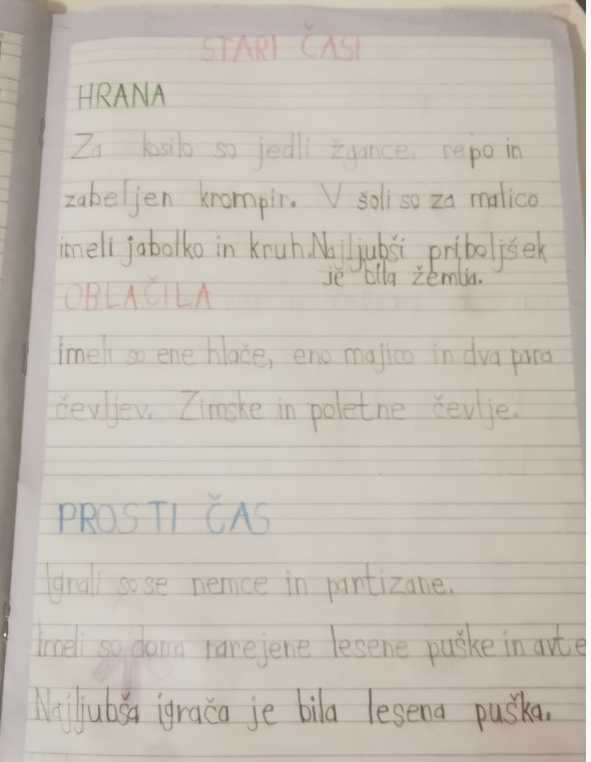 STARI ČASI
HRANA
Za kosilo so jedli žgance, repo in
zabeljen krompir. V šoli so za malico
imeli jabolko in kruh. Najljubši priboljšek
je bila žemlja.
OBLAČILA
Imeli so ene hlače, eno majico in dva para
čevljev. Zimske in poletne čevlje.
PROSTI ČAS
Igrali so se nemce in partizane.
Imeli so doma narejene lesene puške in avte
Najljubša igrača je bila lesena puška.